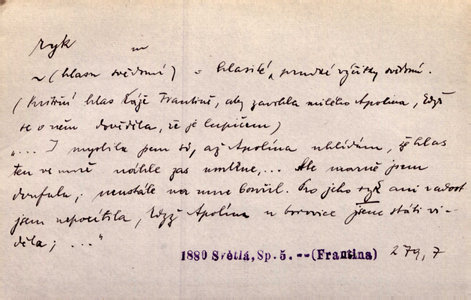 ryk m
~ (hlasu svědomí) = hlasité, prudké výčitky svědomí.
(Vnitřní hlas káže Frantině, aby zavrhla milého Apolína, když
se o něm dověděla, že je lupičem)
„... I myslila jsem si, až Apolína uhlídám, že hlas
ten ve mně náhle zas umlkne, ... Ale marně jsem
doufala; neustále na mne bouřil. Pro jeho ryk ani radost
jsem nepocítila, když Apolína u borovice jsem státi vi-
děla; ..."
1880 Světlá, Sp. 5. -- (Frantina) 279, 7